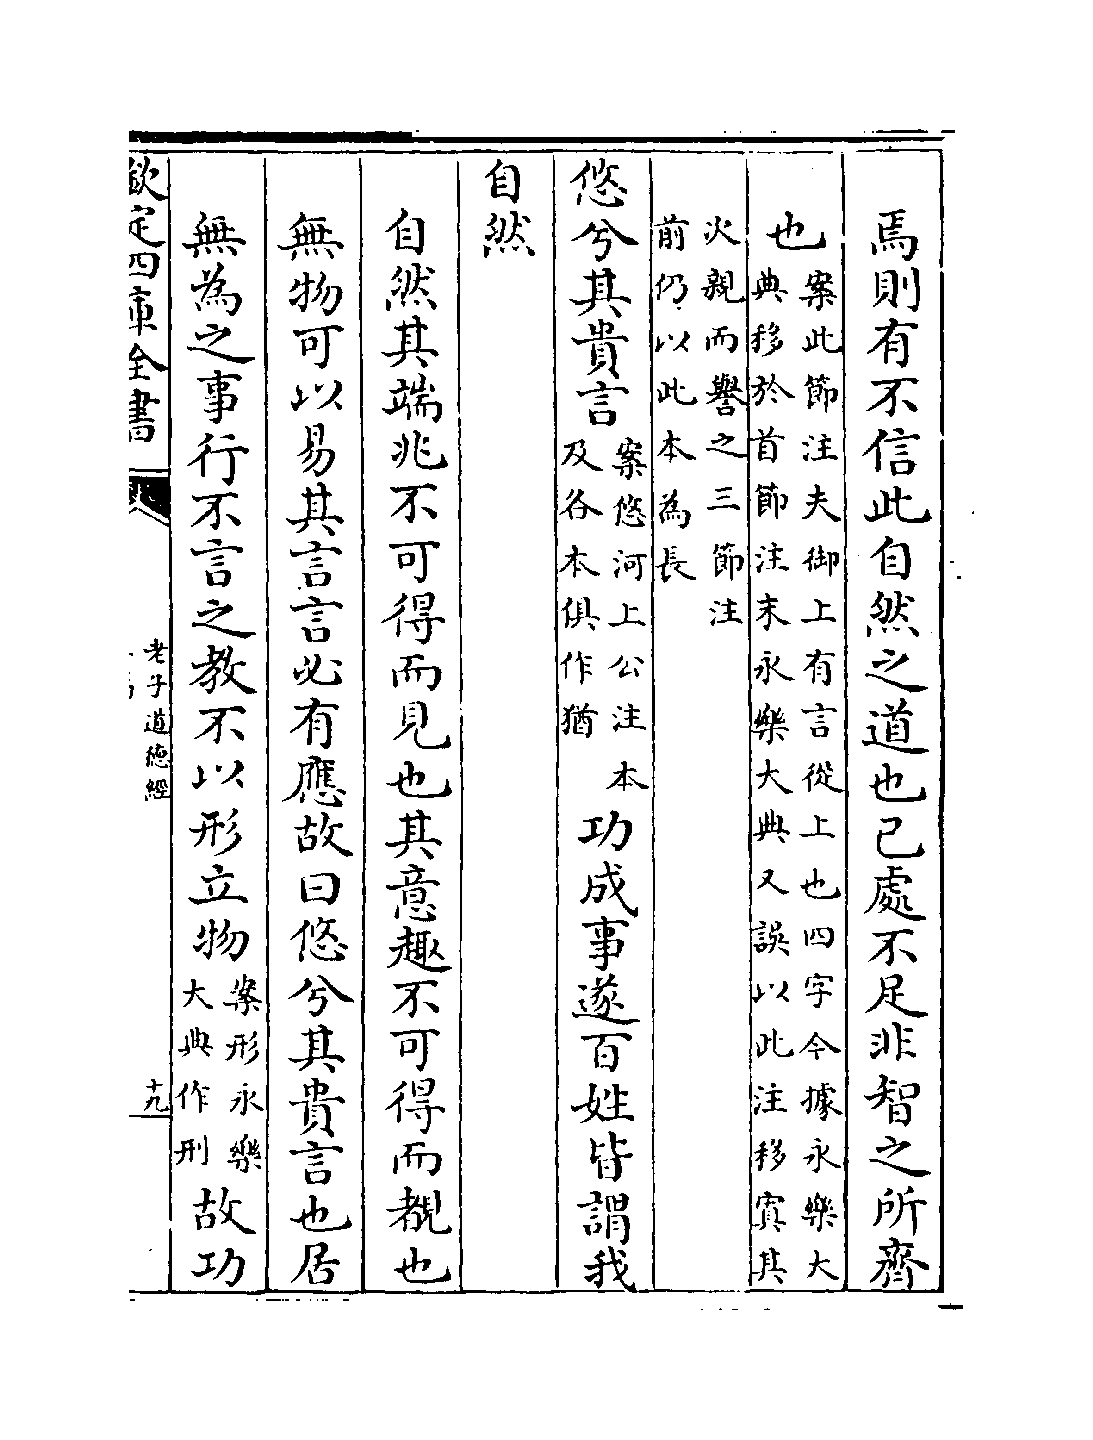 焉則有不信此自然之道也已處不足非智之所齊
也案此節注夫御上有言從上也四字今據永樂大
典移於首節注末永樂大典又誤以此注移寘其
次親而譽之三節注
前仍以此本為長
悠兮其貴言案悠河上公注本
及各本俱作猶功成事遂百姓皆謂我
自然
自然其端兆不可得而見也其意趣不可得而覩也
無物可以易其言言必有應故曰悠兮其貴言也居
無為之事行不言之教不以形立物案形永樂
大典作刑故功
欽定四庫全書
老子道德經
十九